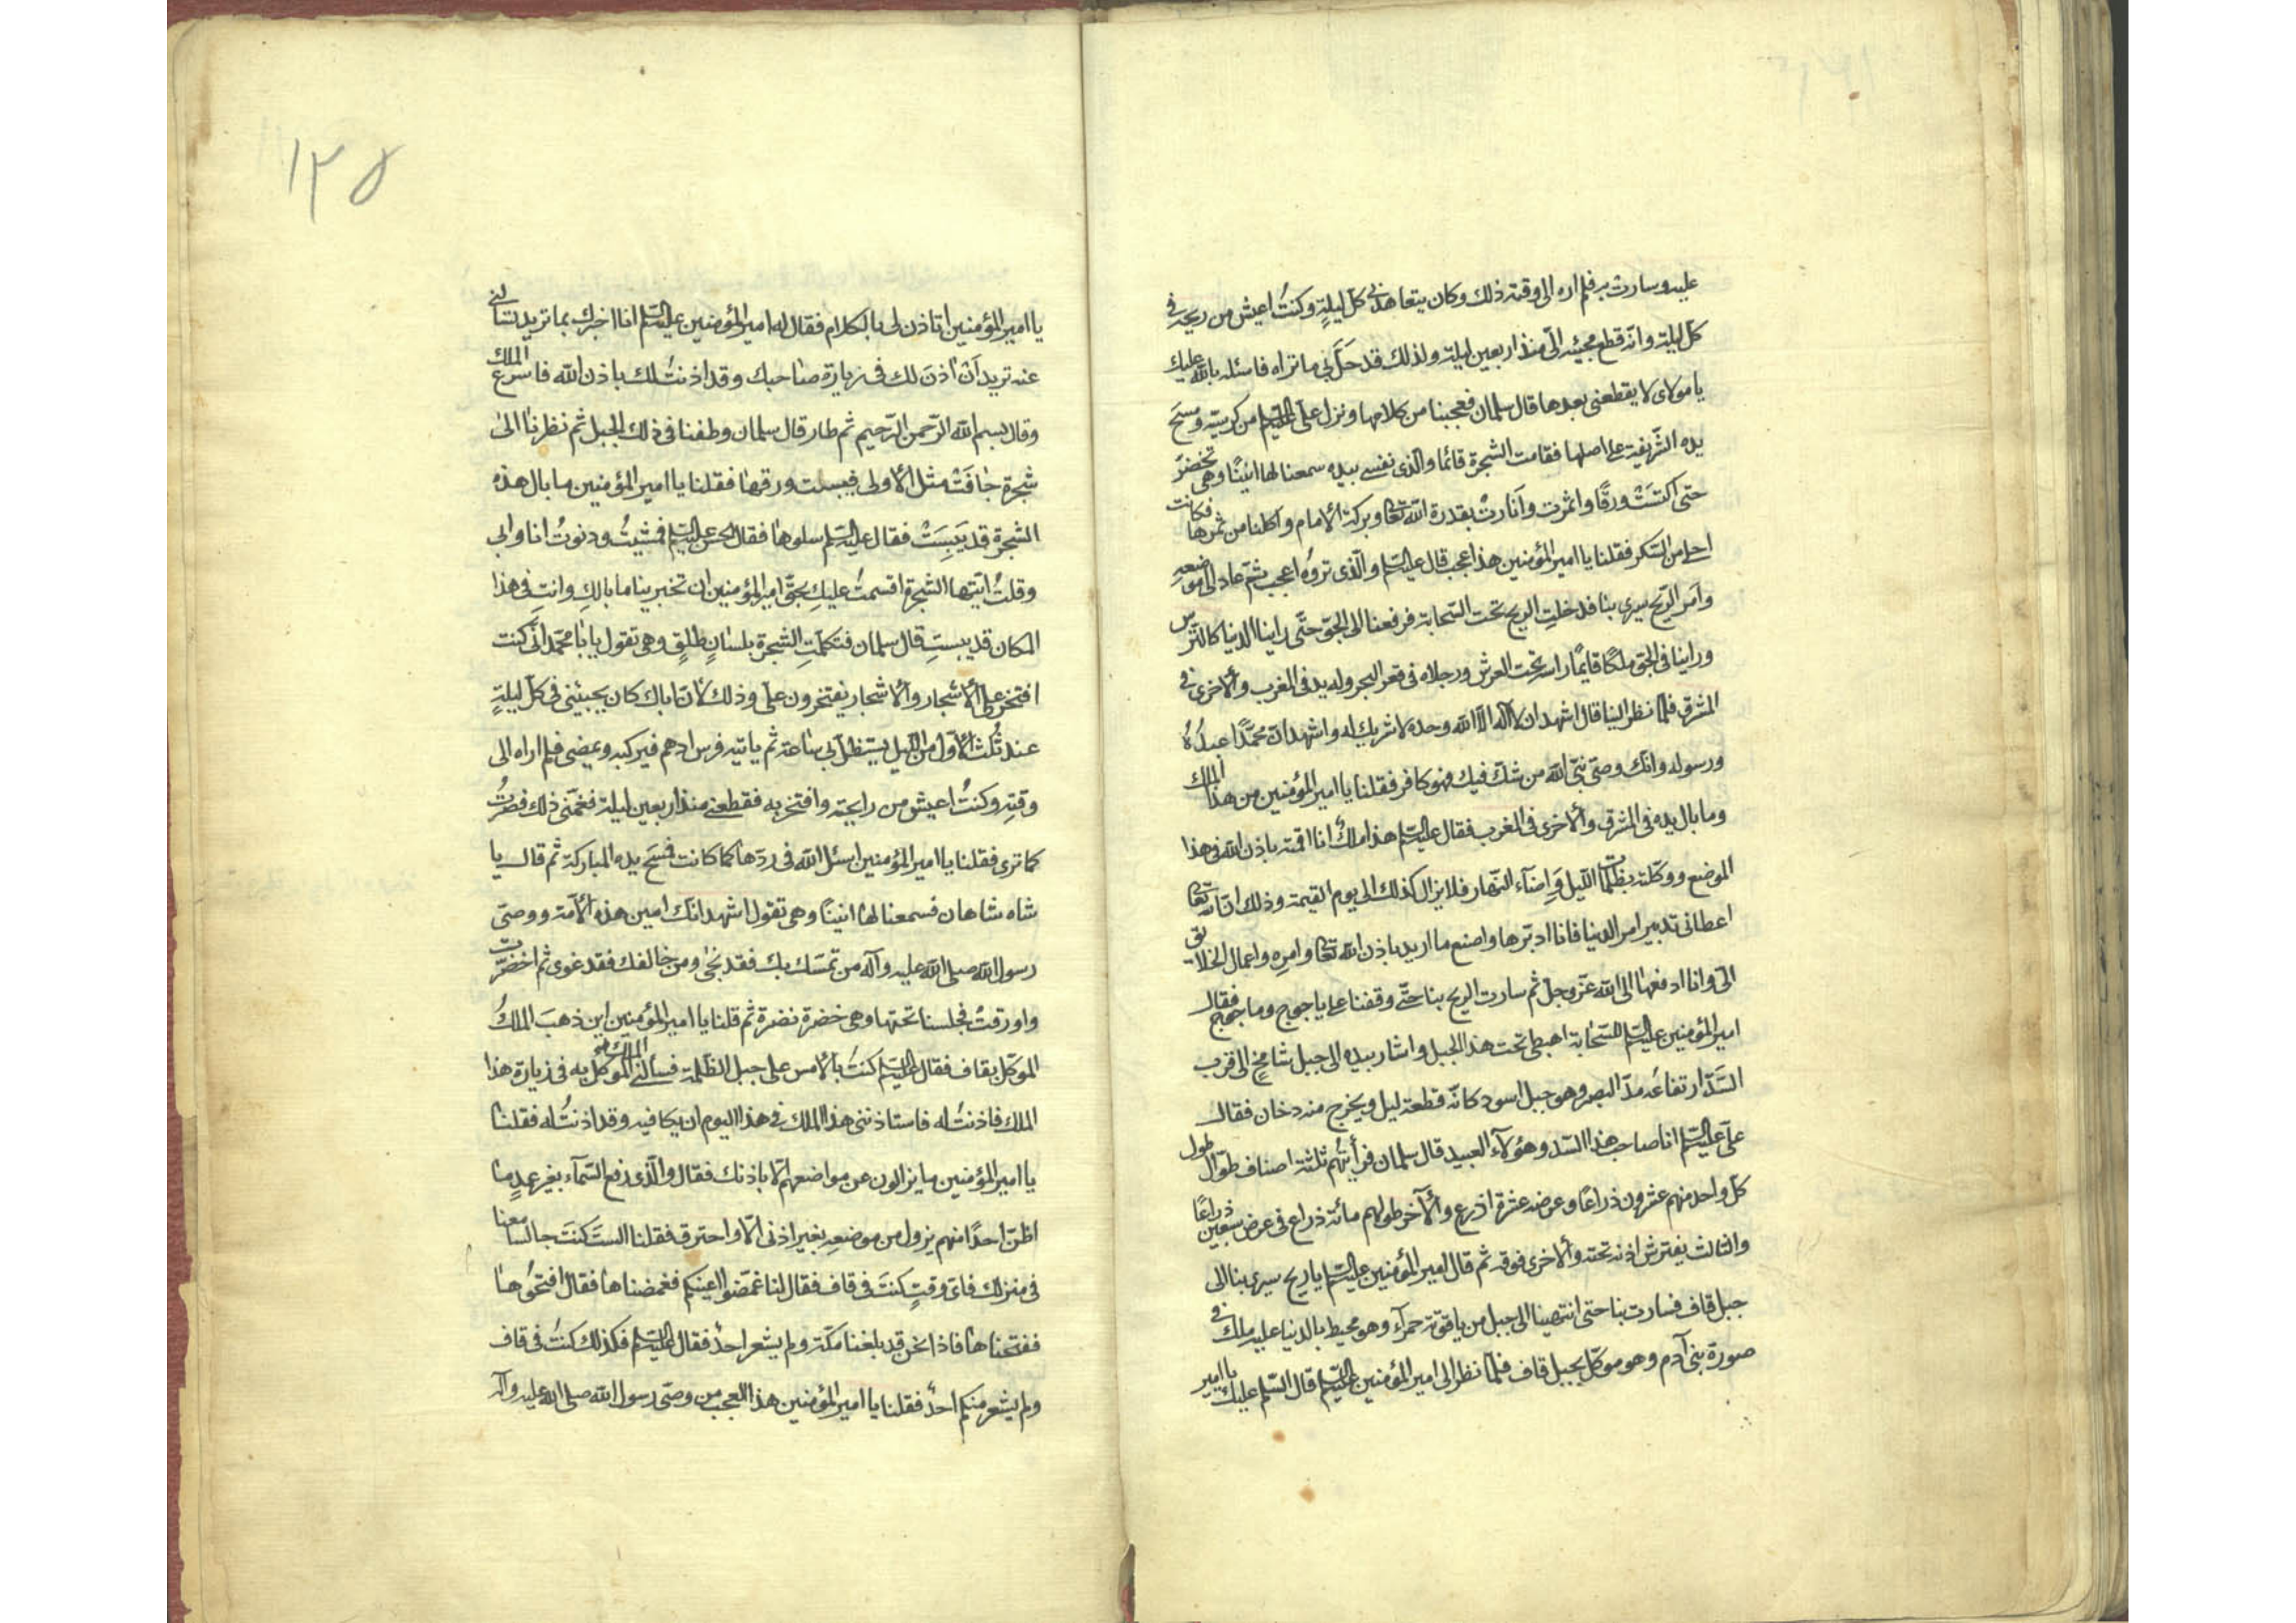 عليه وسارت به فلم اره الى وقته ذلك وكان يتعاهدني كل ليلةٍ وكنتُ اعيش من ريحه في
كل ليلة وانه قطع مجيئه الىّ منذ اربعين ليلة ولذلك قد حَلَّ بي ما تراه فاسئله بالله عليك
يا مولاى لا يقطعنى بعدها قال سلمان فعجبنا من كلامها ونزل علىّ عليه السلم من كرسيّه ومسَحَ
يده الشريفة على اصلها فقامت الشجرة قائما والّذى نفسي بيده سمعنا لها انينًا وهى تخضرّ
حتى اكتسَتْ ورقًا واثمرت وأنارتْ بقدرة الله تعالى وبركة الامام واكلنا من ثمرها فكانت
احلى من السّكر فقلنا يا امير المؤمنين هذا عجب قال عليه السلم والّذى تروه اعجب ثمّ عاد الى موضعهِ
وامر الريح سيرى بنا فدخلتِ الريح تحت السّحابة فرفعنا الى الجوّ حتّى راينا الدنيا كالتّرس
وراينا فى الجوّ ملكًا قايمًا راسه تحت العرش ورجلاه فى قعر البحر وله يد فى المغرب والاخرى فى
المشرق فلمّا نظر الينا قال اشهد ان لا آله الّا الله وحده لا شريك له واشهد انّ محمّدًا عبدُهُ
ورسوله وانك وصىّ نبىّ الله من شكّ فيك فهو كافر فقلنا يا امير المؤمنين من هذا الملك
وما بال يده فى المشرق والاخرى فى المغرب فقال عليه السلم هذا ملكٌ انا اقمته باذن الله فى هذا
الموضع ووكّلته بظلمات اللّيل وَاِضآء النّهار فلا يزال كذلك الى يوم القيمة وذلك انّ الله تعالى
اعطانى تدبير امر الدنيا فانا ادبّرها واصنع ما اريد باذن الله تعالى وامرِه واعمال الخلايق
الىّ وانا ادفعها الى الله عزّ وجلّ ثم سارت الريح بنا حتّى وقفنا على ياجوج وماجوج فقال
امير المؤمنين عليه السلم للسّحابة اهبطى تحت هذا الجبل واشار بيده الى جبل شامخٍ الى قرب
السَّدّ ارتفاعُه مدّ البصر وهو جبل اسود كانّه قطعة ليل ويخرج منه دخان فقال
علىّ عليه السلم انا صاحب هذا السّد وهؤلآء العبيد قال سلمان فرأيتهُم ثلثة اصناف طوّال طول
كل واحد منهم عشرون ذراعًا وعرضه عشرة اذرع والآخر طولهم مائة ذراع فى عرض سبعين ذراعًا
والثالث يفترش اذنه تحته والاخرى فوقه ثم قال امير المؤمنين عليه السلم يا ريح سيرى بنا الى
جبل قاف فسارت بنا حتى انتهينا الى جبل من ياقوتة حمرآء وهو محيط بالدنيا عليه ملك فى
صورة بنى آدم وهو موكّل بجبل قاف فلمّا نظر الى امير المؤمنين عليه السلم قال السّلم عليك يا امير
١٢٥
يا امير المؤمنين اتاذن لى بالكلام فقال له امير المؤمنين عليه السلم انا اخبرك بما تريد تسالنى
عنه تريد اَنْ اٰذنَ لك فى زيارة صاحبك وقد اذنتُ لك باذن الله فاسرع الملك
وقال بسم الله الرّحمن الرّحيم ثم طار قال سلمان وطفنا فى ذلك الجبل ثم نظرنا الى
شجرة جافَتْ مثل الاولى فيبست ورقها فقلنا يا امير المؤمنين ما بال هذه
الشجرة قد يَبِسَتْ فقال عليه السلم سلوها فقال الحسن عليه السلم فمشيتُ ودنوتُ انا وابى
وقلتُ ايّتها الشجرة اقسمتُ عليكِ بحقّ امير المؤمنين ان تخبرينا ما بالكِ وانتِ فى هذا
المكان قد يبستِ قال سلمان فتكلّمتِ الشجرة بلسانٍ طلقٍ وهى تقول يا با محمّد انّى كنت
افتخر على الاشجار والاشجار يفتخرون علىّ وذلك لانّ اباك كان يجيئنى فى كلّ ليلةٍ
عند ثُلث الاوّل من اللّيل يستظلّ بى ساعة ثم ياتيه فرس ادهم فيركبه ويمضى فلم اراه الى
وقتِه وكنتُ اعيش من رايحته وافتخر به فقطعنى منذ اربعين ليلة فغمّنى ذلك فصرتُ
كما ترى فقلنا يا امير المؤمنين اسئل الله فى ردّها كما كانت فمسَح يده المباركة ثم قال يا
شاه شاهان فسمعنا لها انينًا وهى تقول اشهد انك امين هذه الامّة ووصىّ
رسول الله صلى الله عليه وآله من تمسّك بك فقد نجىٰ ومن خالفك فقد غوى ثم اخضرّت
واورقتْ فجلسنا تحتها وهى خضرة نضرة ثم قلنا يا امير المؤمنين اين ذهبَ الملكُ
الموكّل بقاف فقال عليه السلم كنتُ بالامس على جبل الظلمة فسألنى الملك الموكّل به فى زيارة هذا
الملك فاذنتُ له فاستاذننى هذا الملك فى هذا اليوم ان يكافيه وقد اذنتُ له فقلنا
يا امير المؤمنين ما يزالون عن مواضعهم الّا باذنك فقال والّذى رفع السّمآء بغير عمدٍ ما
اظنّ احدًا منهم يزول من موضعهِ بغير اذنى الّا واحترق فقلنا الستَ كنتَ جالسا معنا
فى منزلك فاىّ وقتٍ كنتَ فى قاف فقال لنا غمّضوا اعينكم فغمضناها فقال افتحوُها
ففتحناها فاذا نحن قد بلغنا مكّة ولم يشعر احدٌ فقال عليه السلم فكذلك كنتُ فى قاف
ولم يشعر منكم احدٌ فقلنا يا امير المؤمنين هذا العجب من وصىّ رسول الله صلى الله عليه وآله